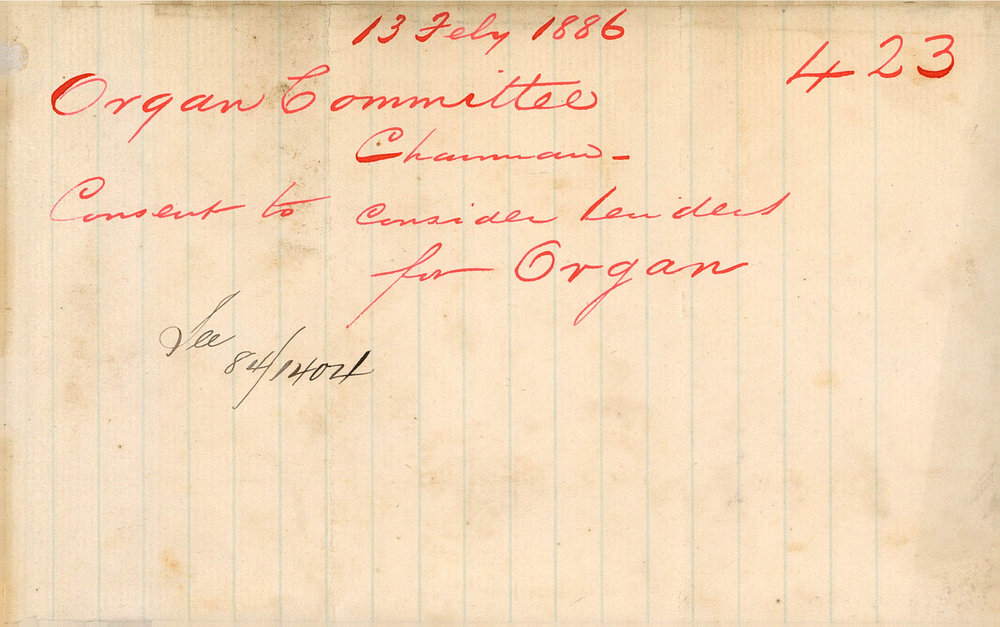 13 Feby 1886
423
Organ Committee
Chairman -
Consent to consider tenders
for Organ
See
84/1404